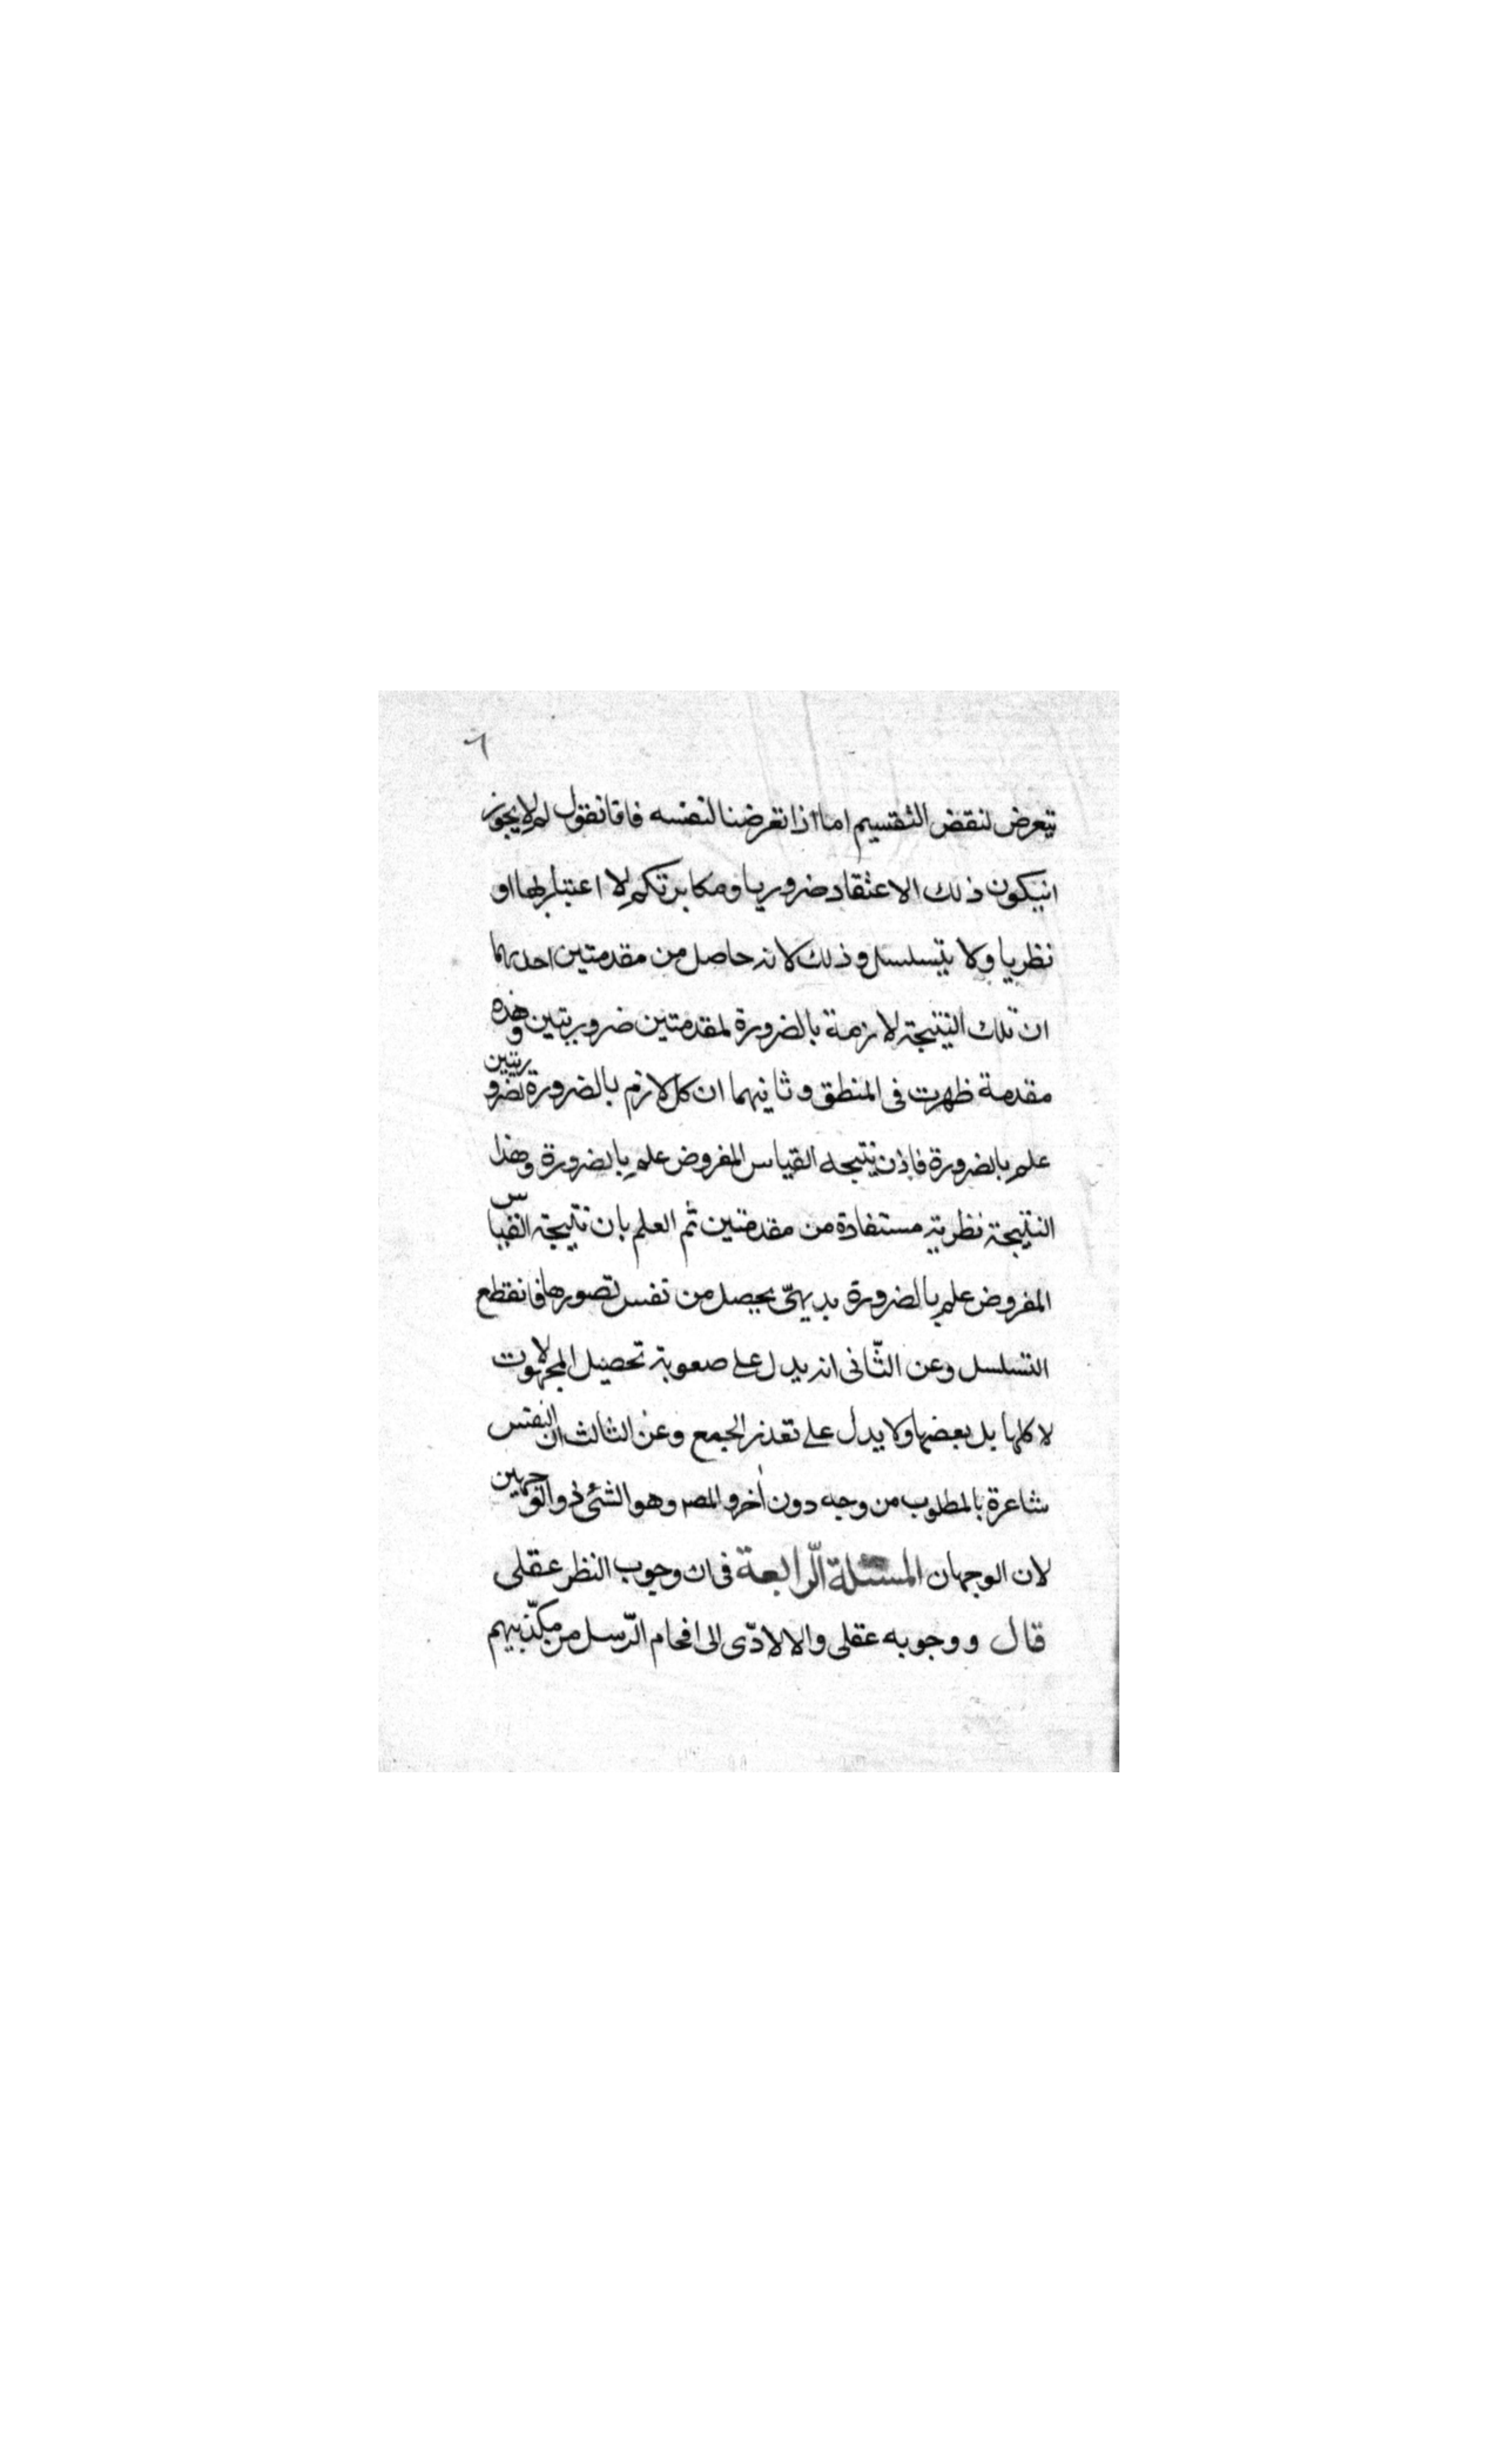 ٦
يتعرض لنقض التقسيم اما اذا تعرضنا لنفسه فانا نقول لم لا يجوز
انيكون ذلك الاعتقاد ضروريا ومكابرتكم لا اعتبار لها او
نظريا ولا يتسلسل وذلك لانه حاصل من مقدمتين احديهما
ان تلك النتيجة لازمة بالضرورة لمقدمتين ضروريتين وهذه
مقدمة ظهرت فى المنطق وثانيهما ان كل لازم بالضرورة لضروريتين
علم بالضرورة فاذن نتيجه القياس المفروض علم بالضرورة وهذا
النتيجة نظرية مستفادة من مقدمتين ثم العلم بان نتيجة القياس
المفروض علم بالضرورة بديهىّ يحصل من نفس تصورها فانقطع
التسلسل وعن الثّانى انه يدل على صعوبة تحصيل المجهولات
لا كلها بل بعضها ولا يدل على تعذر الجمع وعن الثالث ان النفس
شاعرة بالمطلوب من وجه دون اخر والمص وهو الشئ ذو الوجهين
لان الوجهان المسئلة الرّابعة فى ان وجوب النظر عقلى
قال ووجوبه عقلى والا لادّى الى افحام الرّسل من مكذّبيهم